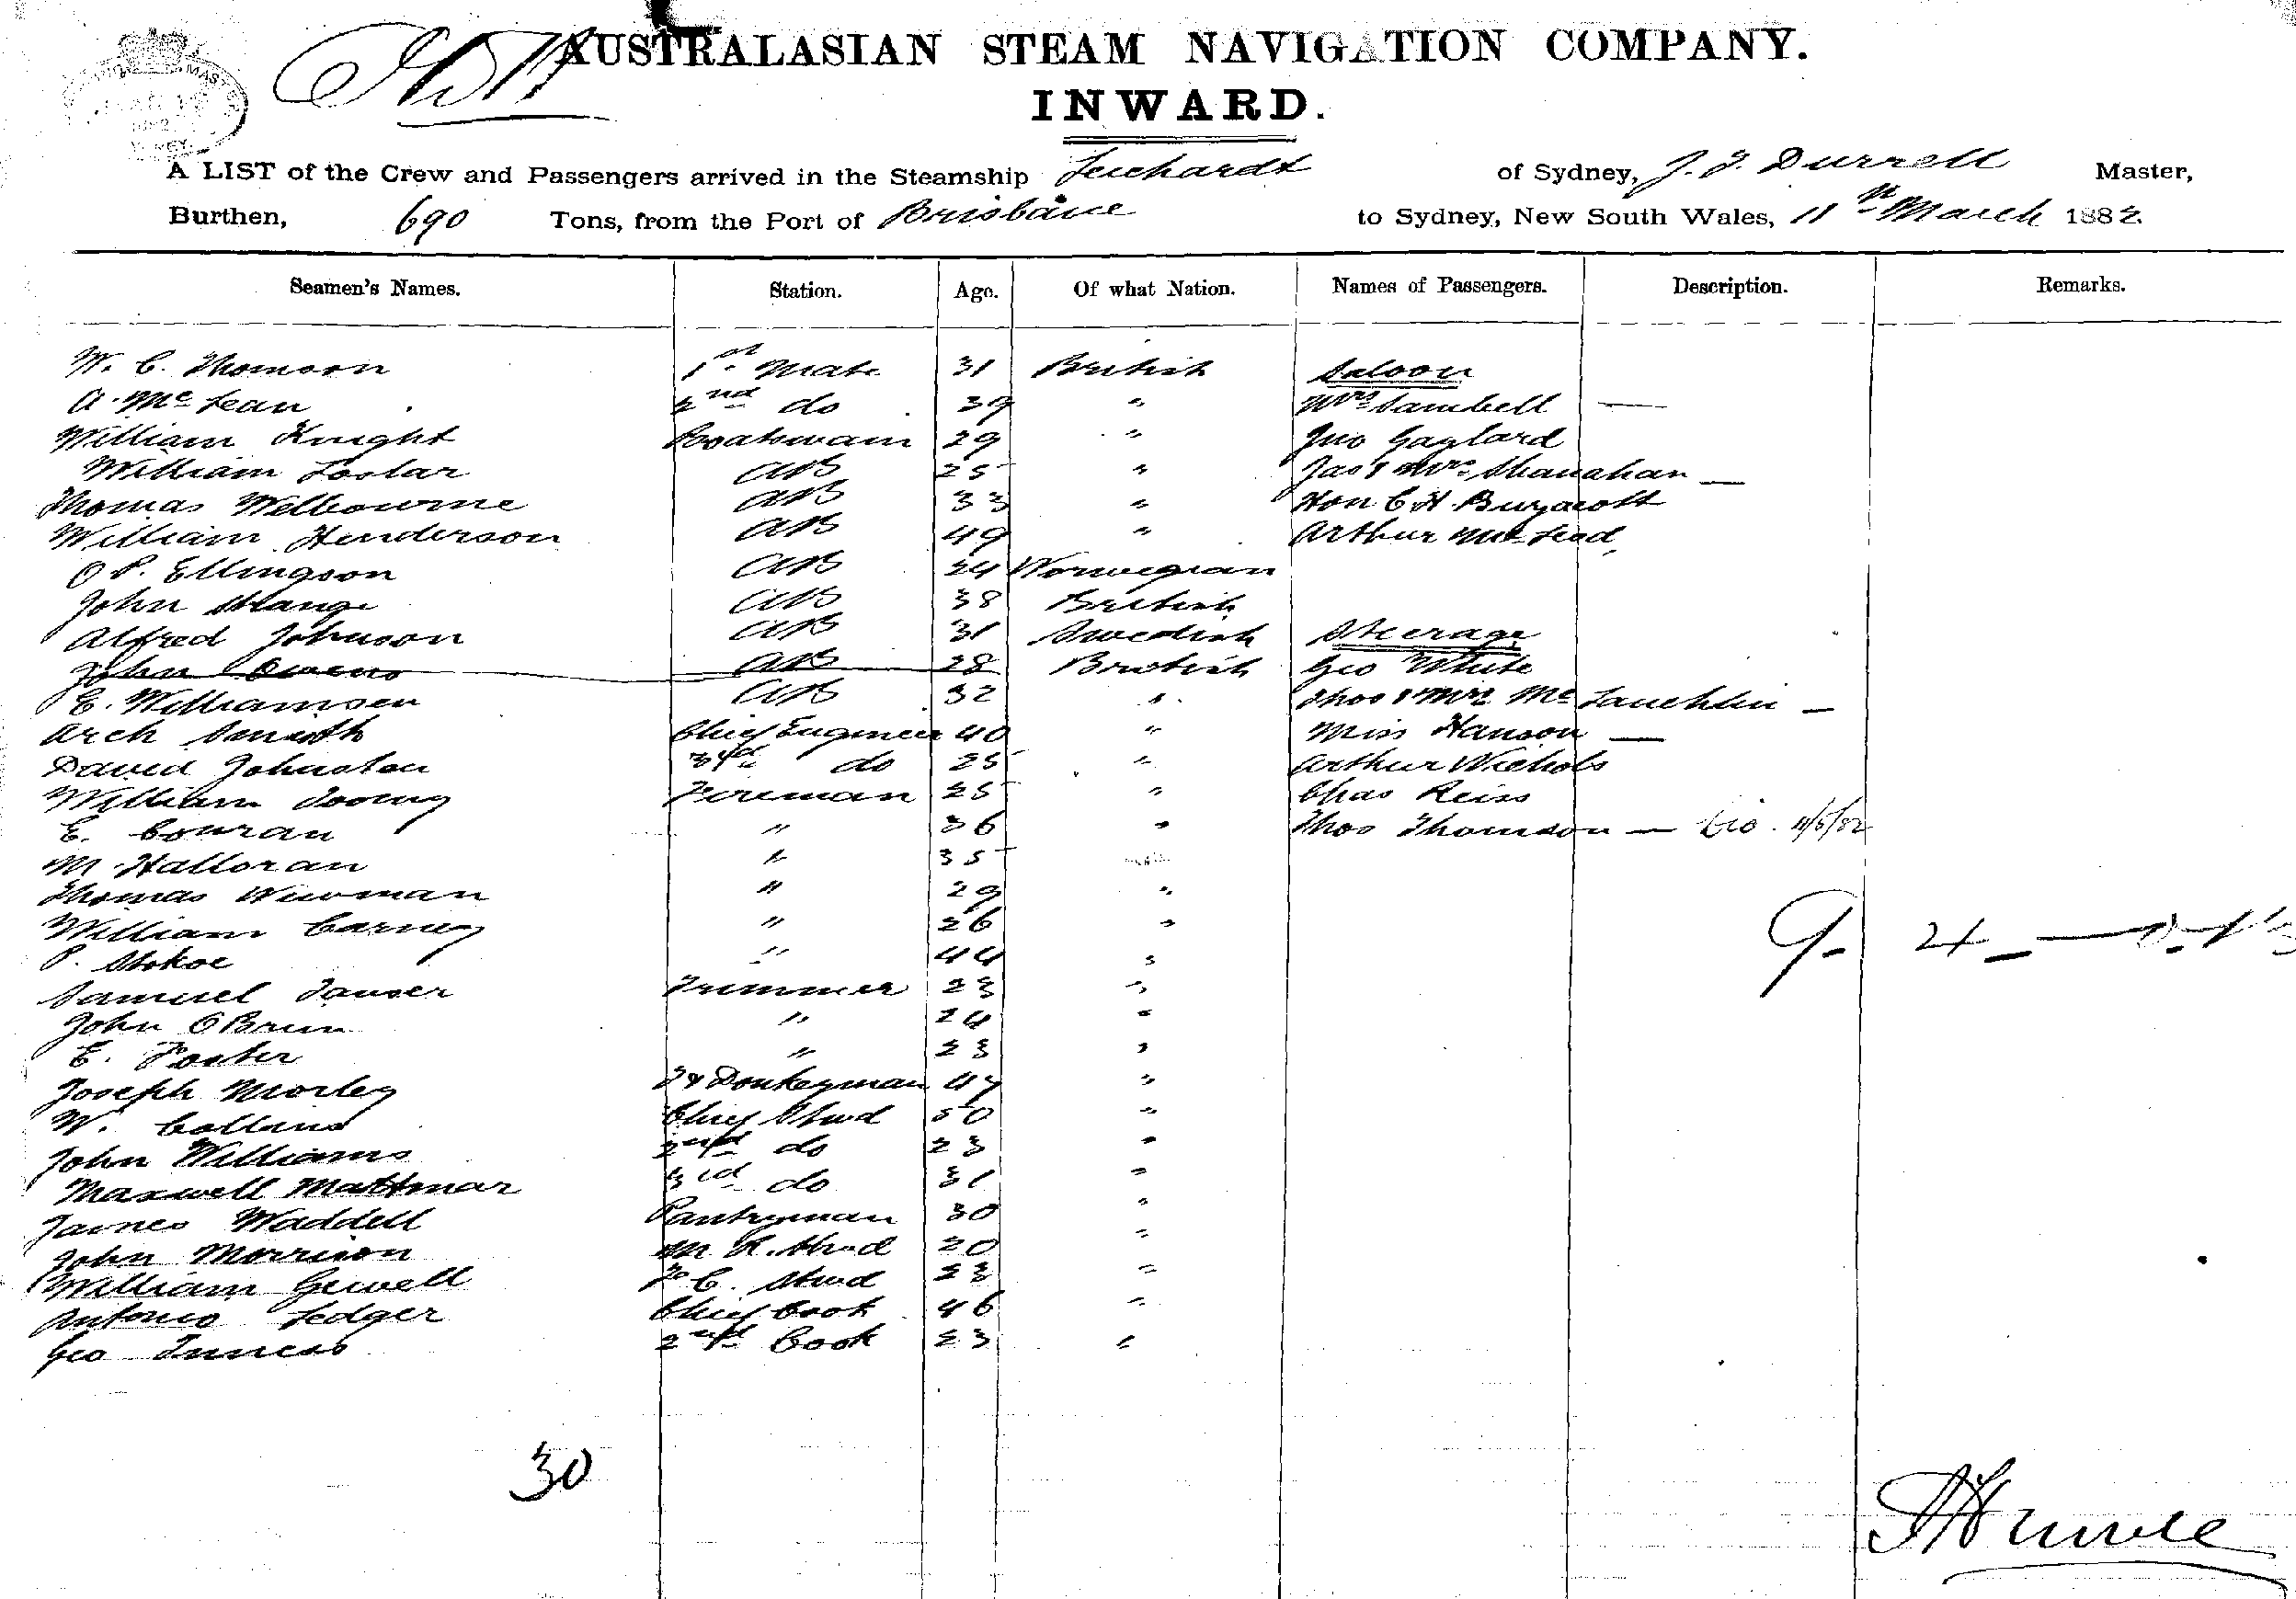 AUSTRALASIAN STEAM NAVIGATION COMPANY.
INWARD.
A LIST of the Crew and Passengers arrived in the Steamship Leichardt of Sydney, J. T. Durrell Master,
Burthen, 690 Tons, from the Port of Brisbane to Sydney, New South Wales, 11th March 1882
Seamen's Names. Station. Age. Of what Nation. Names of Passengers. Description. Remarks.
W. C. Thomson 1st Mate 31 British Saloon
A. McLean 2nd do 39 " Mrs Sambell —
William Knight Boatswain 29 " Jno Gaylard
William Loslar AB 25 " Jas & Mrs Shanahan —
Thomas Welbourne AB 33 " Hon C H Buzacott
William Henderson AB 49 " Arthur
O P. Ellingson AB 24 Norwegian
John Strange AB 38 British
Alfred Johnson AB 31 Swedish Steerage
John Owens AB 28 British Geo White
E. Williamsen AB 32 " Thos & Mrs McLauchlin —
Arch Smith Chief Engineer 40 " Miss Hanson —
David Johnston 3rd do 25 " Arthur Nichols
William Fireman 25 " Chas Reiss
E. Conran " 36 " Thos Thomson —
M Halloran " 35
Thomas Newman " 29 "
William Carney " 26 "
P. Stokoe " 44 "
Samuel Tanser Trimmer 23 "
John OBrien " 24 "
E. Foster " 23 "
Joseph Morley Donkeyman 47 "
W. Collins Chief Stwd 50 "
John Williams 2nd do 23 "
Maxwell Mattmar 3rd do 31 "
James Waddell Pantryman 30 "
John Morrison M. R. Stwd 20 "
William Gewell F C. Stwd 23 "
Antonio Ledger Chief Cook 46 "
Geo Inness 2nd Cook 23 "
30